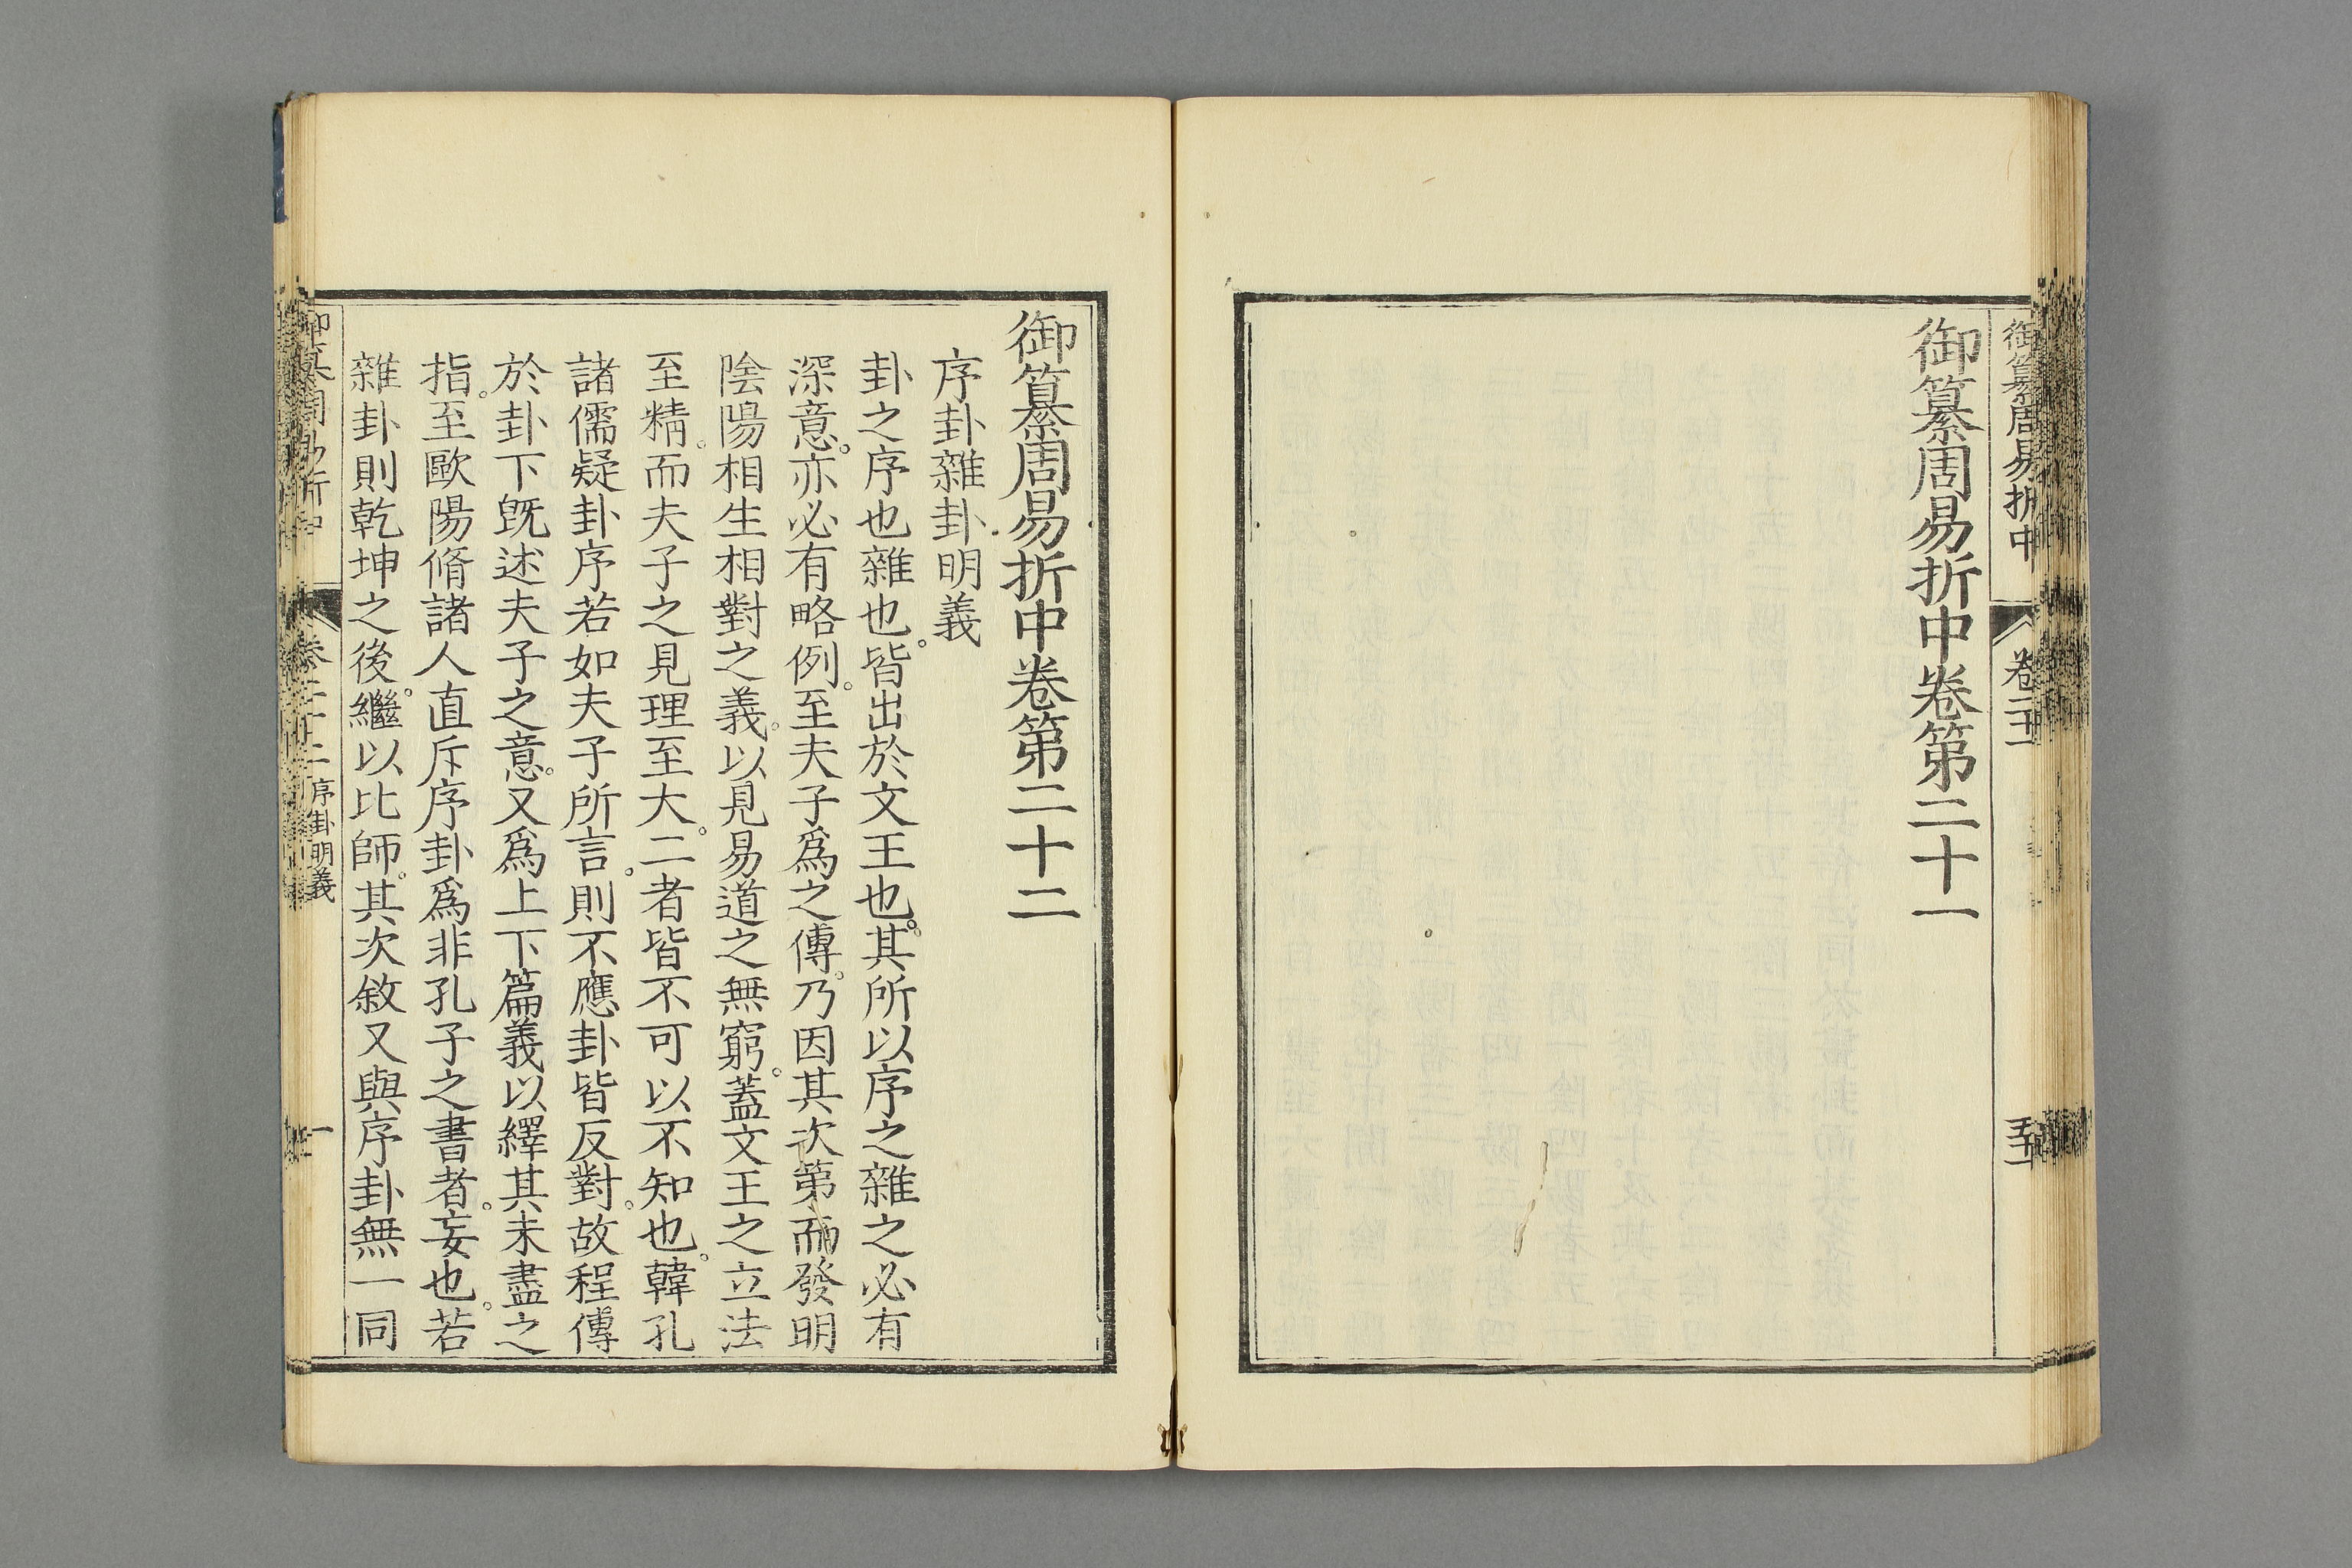 御纂周易折中
卷二十一
五十一
御纂周易折中卷第二十一
御纂周易折中卷第二十二
序卦雜卦明義
卦之序也雜也。皆出於文王也。其所以序之雜之必有
深意。亦必有略例。至夫子爲之傳。乃因其次第而發明
陰陽相生相對之義。以見易道之無窮。蓋文王之立法
至精。而夫子之見理至大。二者皆不可以不知也。韓孔
諸儒疑卦序若如夫子所言。則不應卦皆反對。故程傳
於卦下旣述夫子之意。又爲上下篇義以繹其未盡之
指。至歐陽脩諸人直斥序卦爲非孔子之書者。妄也。若
雜卦則乾坤之後。繼以比師。其次敘又與序卦無一同
御纂周易折中
卷二十二
序卦明義
一